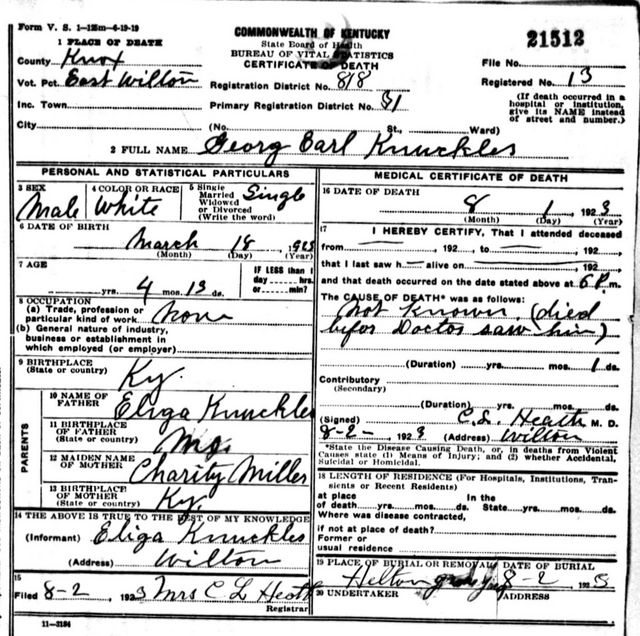 Form V. S. 1-125m-6-19-19
COMMONWEALTH OF KENTUCKY
State Board of Health
BUREAU OF VITAL STATISTICS
CERTIFICATE OF DEATH
21512
1 PLACE OF DEATH
County Knox
File No.
Vot. Pct. East Wilton
Registration District No. 818
Registered No. 13
Inc. Town
Primary Registration District No. 81
(If death occurred in a hospital or institution, give its NAME instead of street and number.)
City (No. St., Ward)
2 FULL NAME Georg Earl Knuckles
PERSONAL AND STATISTICAL PARTICULARS
3 SEX Male
4 COLOR OR RACE White
5 Single Married Widowed or Divorced (Write the word) Single
6 DATE OF BIRTH
March 18, 1923
(Month) (Day) (Year)
7 AGE
yrs. 4 mos. 13 ds.
IF LESS than 1 day hrs. or min?
8 OCCUPATION
(a) Trade, profession or particular kind of work None
(b) General nature of industry, business or establishment in which employed (or employer)
9 BIRTHPLACE
(State or country) Ky.
PARENTS
10 NAME OF FATHER Eliga Knuckles
11 BIRTHPLACE OF FATHER
(State or country)
12 MAIDEN NAME OF MOTHER Charity Miller
13 BIRTHPLACE OF MOTHER
(State or country) Ky.
14 THE ABOVE IS TRUE TO THE BEST OF MY KNOWLEDGE
(Informant) Eliga Knuckles
(Address) Wilton
15
Filed 8-2, 1923 Mrs C L Heath
Registrar
11-3184
MEDICAL CERTIFICATE OF DEATH
16 DATE OF DEATH
8 1, 1923
(Month) (Day) (Year)
17 I HEREBY CERTIFY, That I attended deceased
from , 192 to , 192
that I last saw h alive on , 192
and that death occurred on the date stated above at 6 P. m.
The CAUSE OF DEATH* was as follows:
Not Known (died
befor Doctor saw him)
(Duration) yrs. mos. 1 ds.
Contributory
(Secondary)
(Duration) yrs. mos. ds.
(Signed) C. L. Heath M. D.
8-2-, 1923 (Address) Wilton
*State the Disease Causing Death, or, in deaths from Violent Causes state (1) Means of Injury; and (2) whether Accidental, Suicidal or Homicidal.
18 LENGTH OF RESIDENCE (For Hospitals, Institutions, Transients or Recent Residents)
At place of death yrs. mos. ds. In the State yrs. mos. ds.
Where was disease contracted,
if not at place of death?
Former or
usual residence
19 PLACE OF BURIAL OR REMOVAL DATE OF BURIAL
Helton 8-2, 1923
20 UNDERTAKER ADDRESS